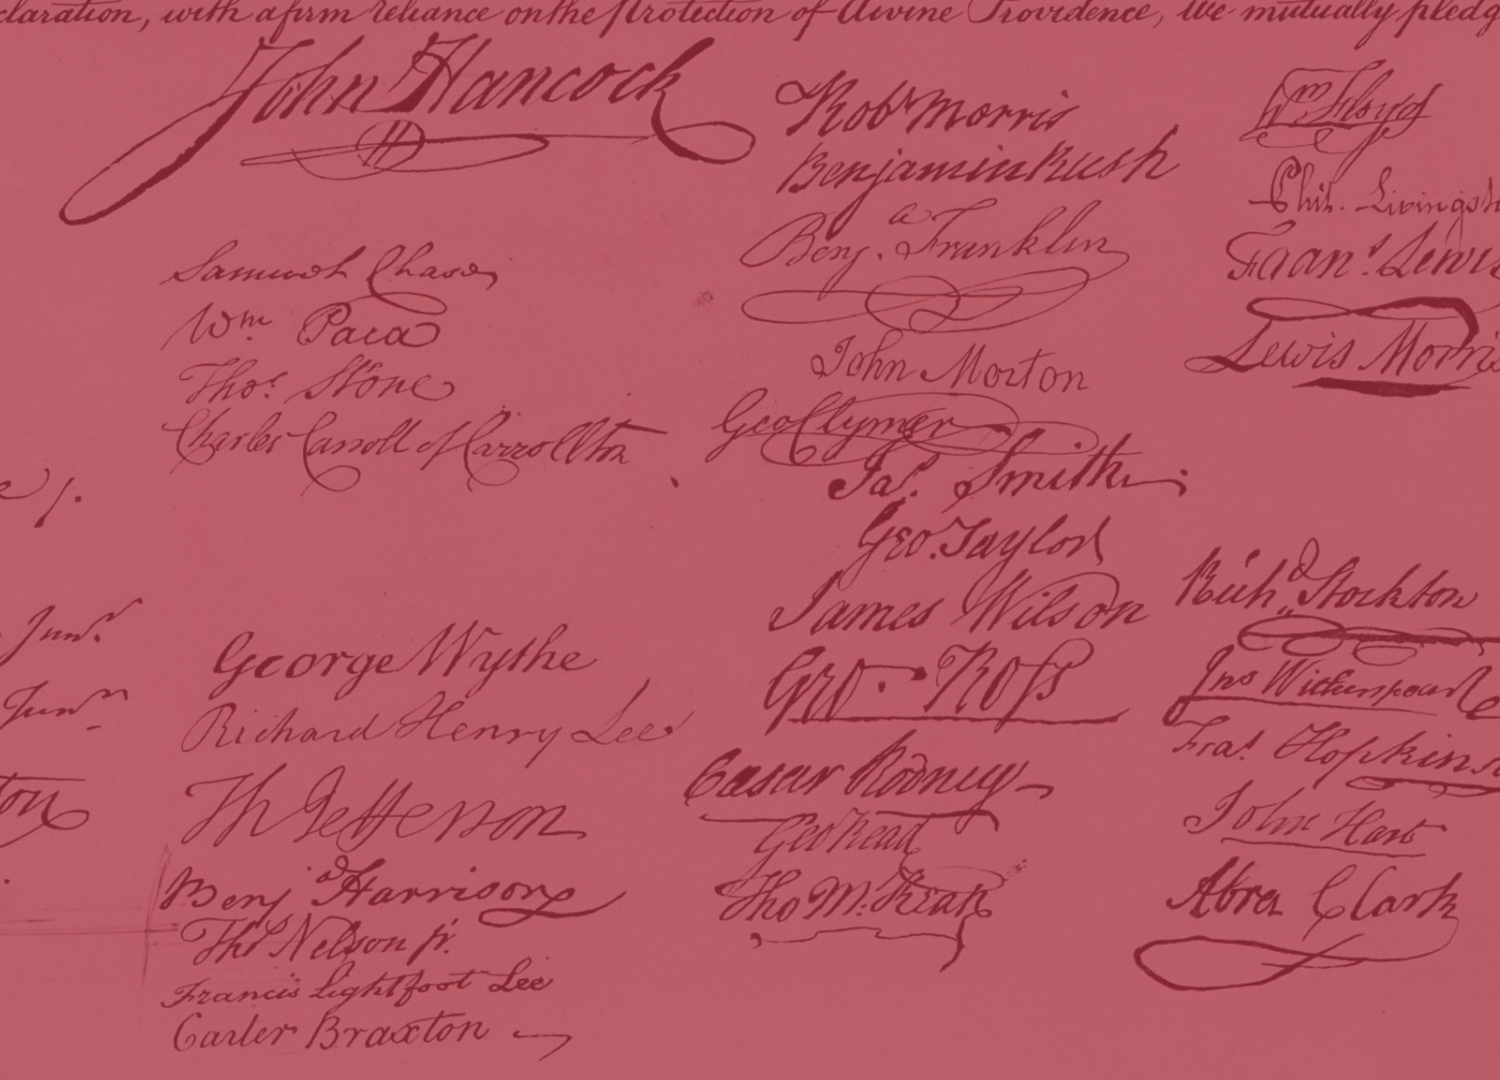 claration, with a firm reliance on the protection of divine Providence, we mutually pledg
John Hancock
Samuel Chase
Wm. Paca
Thos. Stone
Charles Carroll of Carrollton
Junr.
Junr.
ton
George Wythe
Richard Henry Lee
Th Jefferson
Benja Harrison
Thos Nelson jr.
Francis Lightfoot Lee
Carter Braxton
Robt Morris
Benjamin Rush
Benja. Franklin
John Morton
Geo Clymer
Jas. Smith.
Geo. Taylor
James Wilson
Geo. Ross
Caesar Rodney
Geo Read
Tho M:Kean
Wm. Floyd
Phil. Livingst
Frans. Lewis
Lewis Morris
Richd. Stockton
Jno Witherspoon
Fras. Hopkins
John Hart
Abra Clark